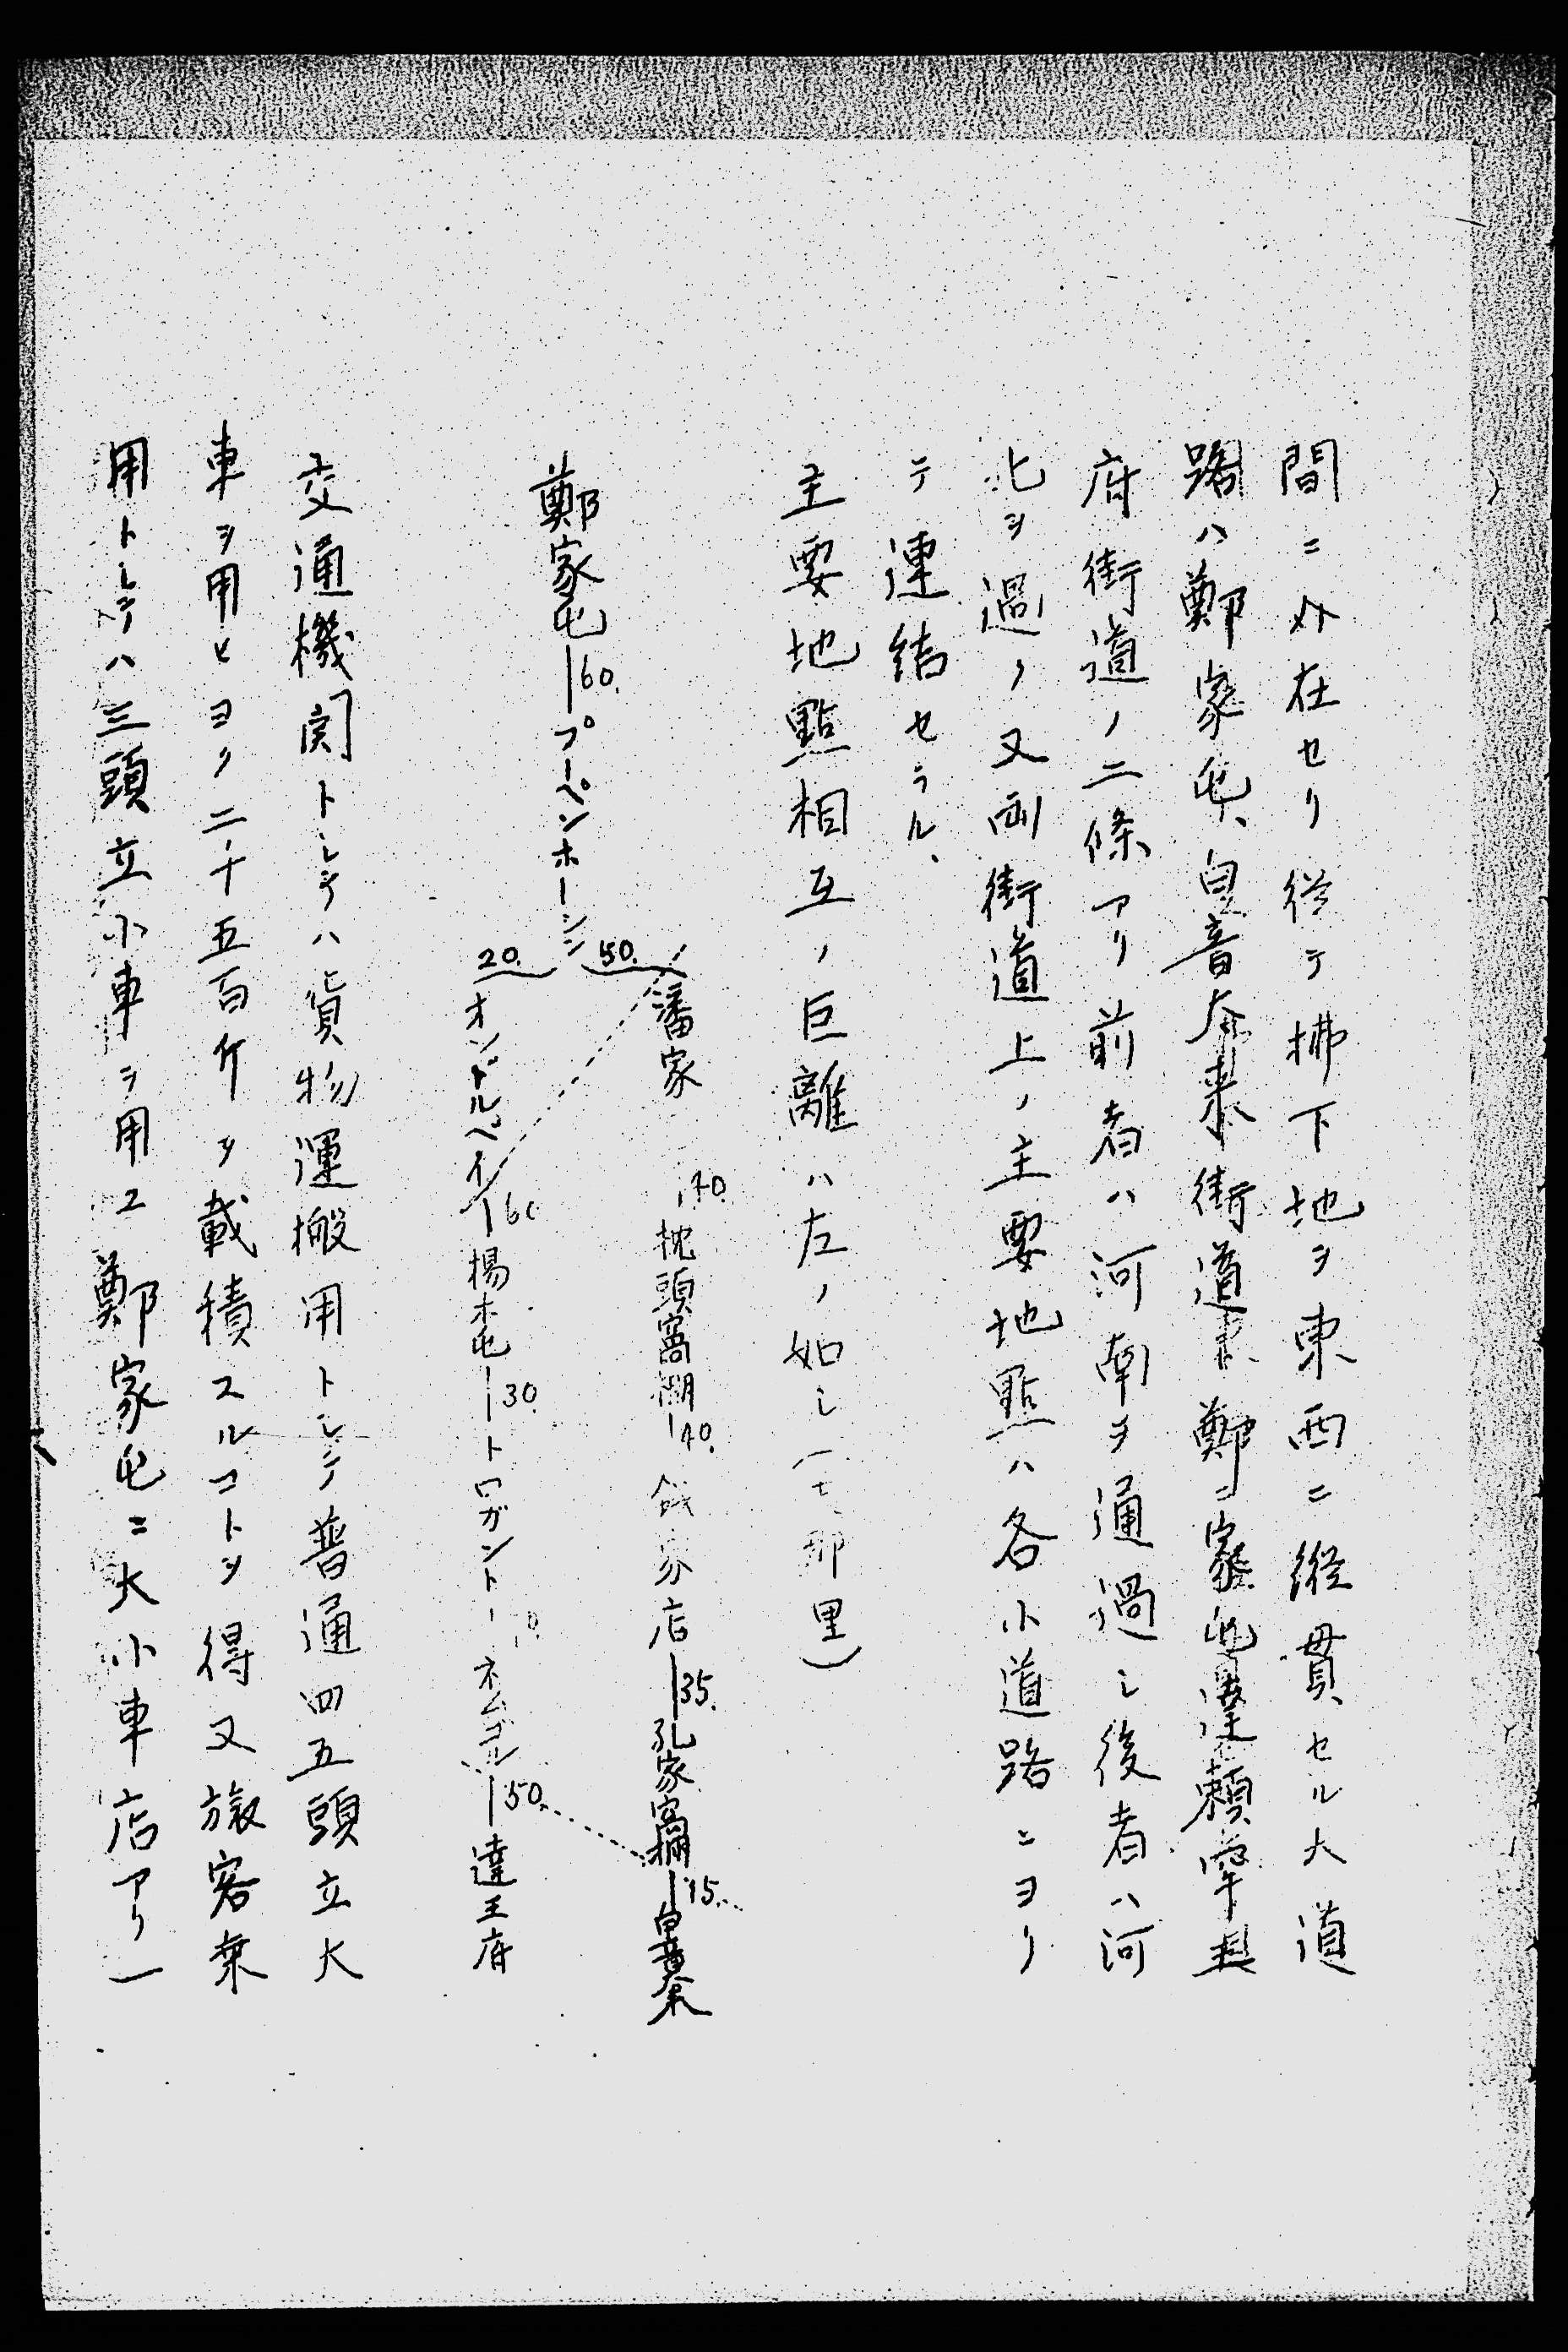 間ニ外在セリ従テ拂下地ヲ東西ニ縦貫セル大道
路ハ鄭家屯、白音太来街道ト鄭家屯達頼罕王
府街道ノ二條アリ前者ハ河南ヲ通過シ後者ハ河
北ヲ過ノ又両街道上ノ主要地點ハ各小道路ニヨリ
テ連結セラル、
主要地點相互ノ巨離ハ左ノ如シ(支那里)
潘家 40. 枕頭窩棚 40. 家店 35. 孔家窩堋 15. 白音太来
鄭家屯 60. プーペンホーシン 50. 20.
オンドルペイ 60 楊木屯 30. トロガントー ネムゴル 50. 達王府
交通機関トシテハ貨物運搬用トシテ普通四五頭立大
車ヲ用ヒヨク二千五百斤ヲ載積スルコトヲ得又旅客乗
用トシテハ三頭立小車ヲ用ユ鄭家屯ニ大小車店アリ一